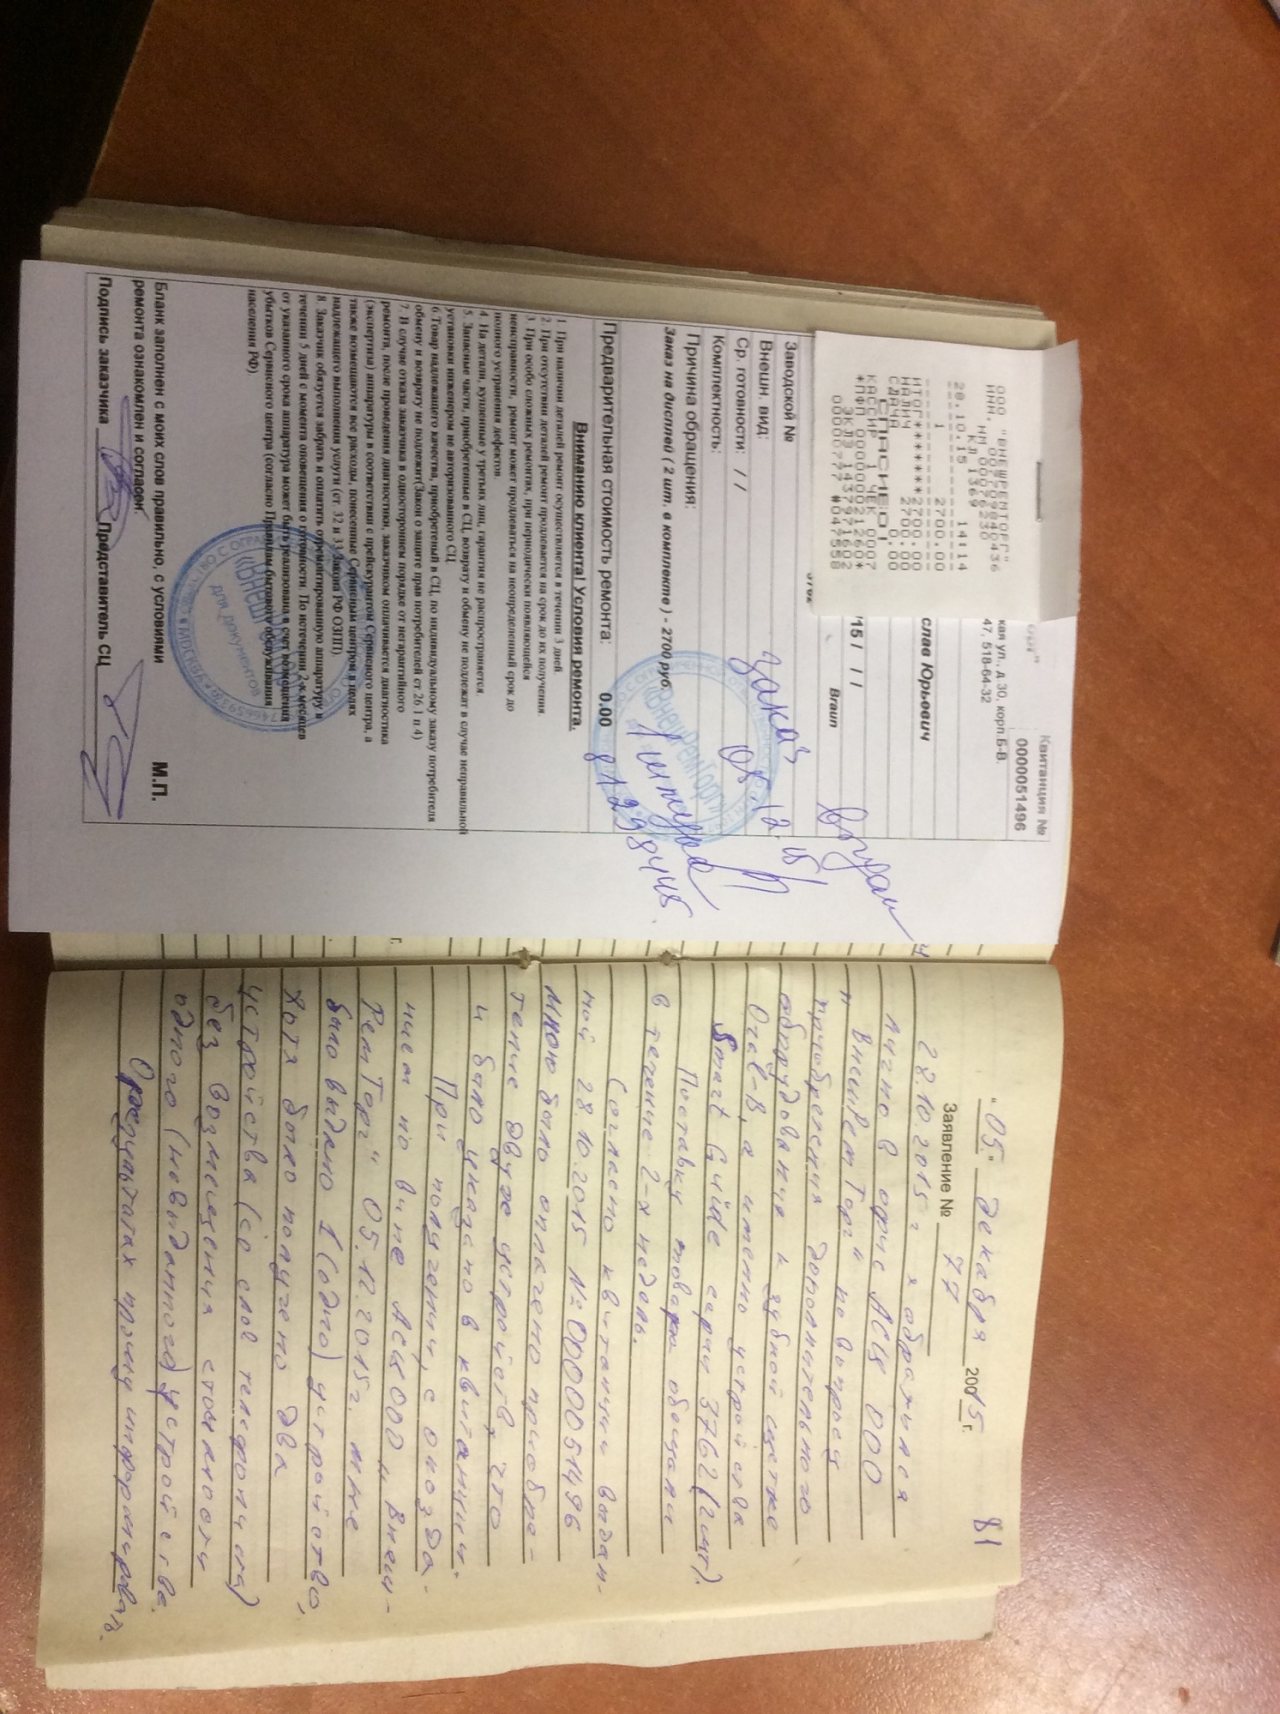 ООО "ВНЕШРЕНТОРГ"
ИНН. 007709840436
НМ 00076230
КЛ 1369
28.10.15 14:14
1 2700.00
ИТОГ*******2700.00
НАЛИЧ 2700.00
СДАЧА 0.00
СПАСИБО!
КАССИР 1 ЧЕК 0007
*ПФП 000000021260*
ЭКЛЗ 1437971602
0000677 #047558
Квитанция №
0000051496
кая ул., д 30, корп.Б-В.
47, 518-64-32
слав Юрьевич
/15 / / /
Braun
3762
Заводской №
Внешн. вид:
Ср. готовности: / /
Комплектность:
Причина обращения:
Заказ на дисплей ( 2 шт. в комплекте ) - 2700 руб.
Выдан
заказ
05.12.15
81298445
Предварительная стоимость ремонта: 0.00
Вниманию клиента! Условия ремонта.
1. При наличии деталей ремонт осуществляется в течении 3 дней.
2. При отсутствии деталей ремонт продлевается на срок до их получения.
3. При особо сложных ремонтах, при периодически появляющейся
неисправности, ремонт может продлеваться на неопределенный срок до
полного устранения дефектов.
4. На детали, купленные у третьих лиц, гарантия не распространяется.
5. Запасные части, приобретенные в СЦ, возврату и обмену не подлежат в случае неправильной
установки инженером не авторизованного СЦ
6.Товар надлежащего качества, приобретеный в СЦ, по индивидуальному заказу потребителя
обмену и возврату не подлежит(Закон о защите прав потребителей ст 26.1 п 4)
7. В случае отказа заказчика в одностороннем порядке от негарантийного
ремонта, после проведения диагностики, заказчиком оплачивается диагностика
(экспертиза) аппаратуры в соответствии с прейскурантом Сервисного центра, а
также возмещаются все расходы, понесенные Сервисным центром в целях
надлежащего выполнения услуги (ст. 32 и 33 Закона РФ ОЗПП)
8. Заказчик обязуется забрать и оплатить отремонтированную аппаратуру в
течении 5 дней с момента оповещения о готовности. По истечении 2-х месяцев
от указанного срока аппаратура может быть реализована в счет возмещения
убытков Сервисного центра (согласно Правилам бытового обслуживания
населения РФ)
Бланк заполнен с моих слов правильно, с условиями
ремонта ознакомлен и согласен.
М.П.
Подпись заказчика Представитель СЦ
"ВнешРемТорг"
для документов
81
"05" декабря 20015 г.
Заявление № 77
28.10.2015 г я обратился
лично в офис АСЦ ООО
"ВнешРемТорг" по вопросу
приобретения дополнительного
оборудования к зубной щетке
Oral-B, а именно устройства
Smart Guide серии 3762 (2шт).
Поставку товара обещали
в течение 2-х недель.
Согласно квитанции выдан-
ной 28.10.2015 №0000051496
мною было оплачено приобре-
тение двух устройств, что
и было указано в квитанции.
При получении, с опозда-
нием по вине АСЦ ООО "Внеш-
РемТорг" 05.12.2015г. мне
было выдано 1 (одно) устройство,
хотя было получено два
устройства (со слов телефониста)
без возмещения стоимости
одного (невыданного) устройства.
О результатах прошу информировать.